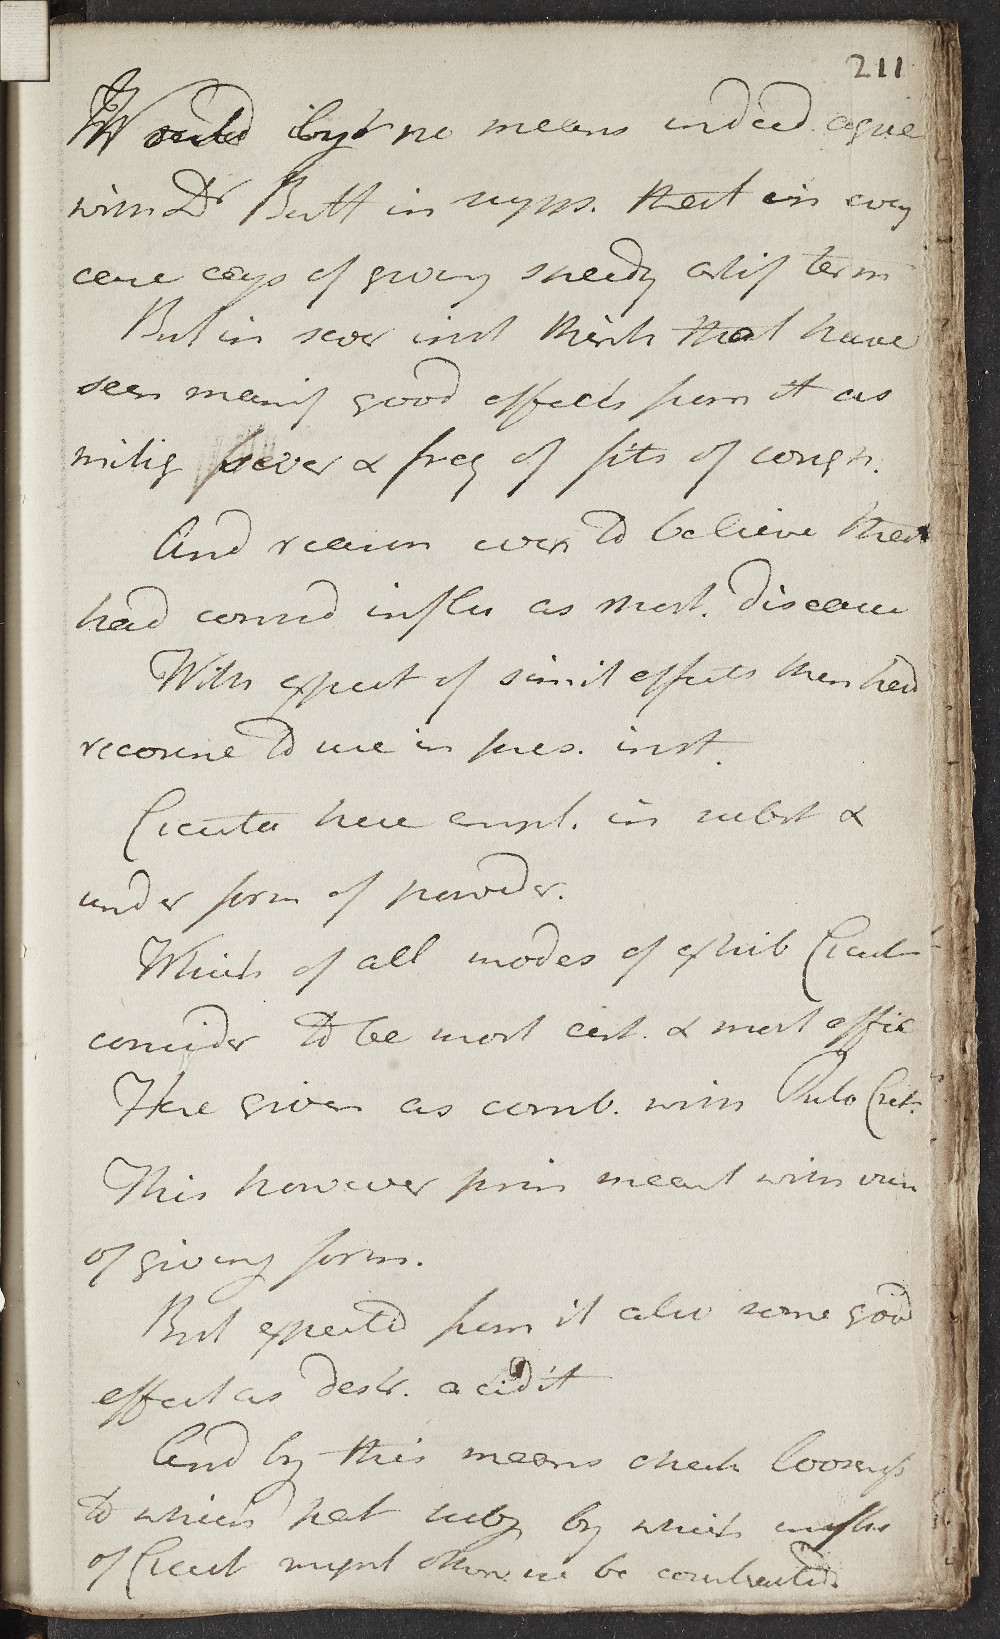 211
Would by no means indeed agree
with Dr Butt in supps. that in every
case cap of giving speedy artif term
But in sever inst think that have
seen manif good effects from it as
mitig fever & freq of fits of cough.
And reason even to believe that
had consid influ as short. disease
With expect of simil effects then had
recourse to use in pres. inst.
Cicuta here empl. in subst &
under form of powder.
Which of all modes of exhib Cicut
consider to be most cert. & most effic
Here given as comb. with Pulv Cret.
This however prin meant with view
of giving form.
But expected from it also some good
effect as destr. acidit
And by this means check looseness
to which pat subj by which influ
of Cicut might otherwise be counteracted.